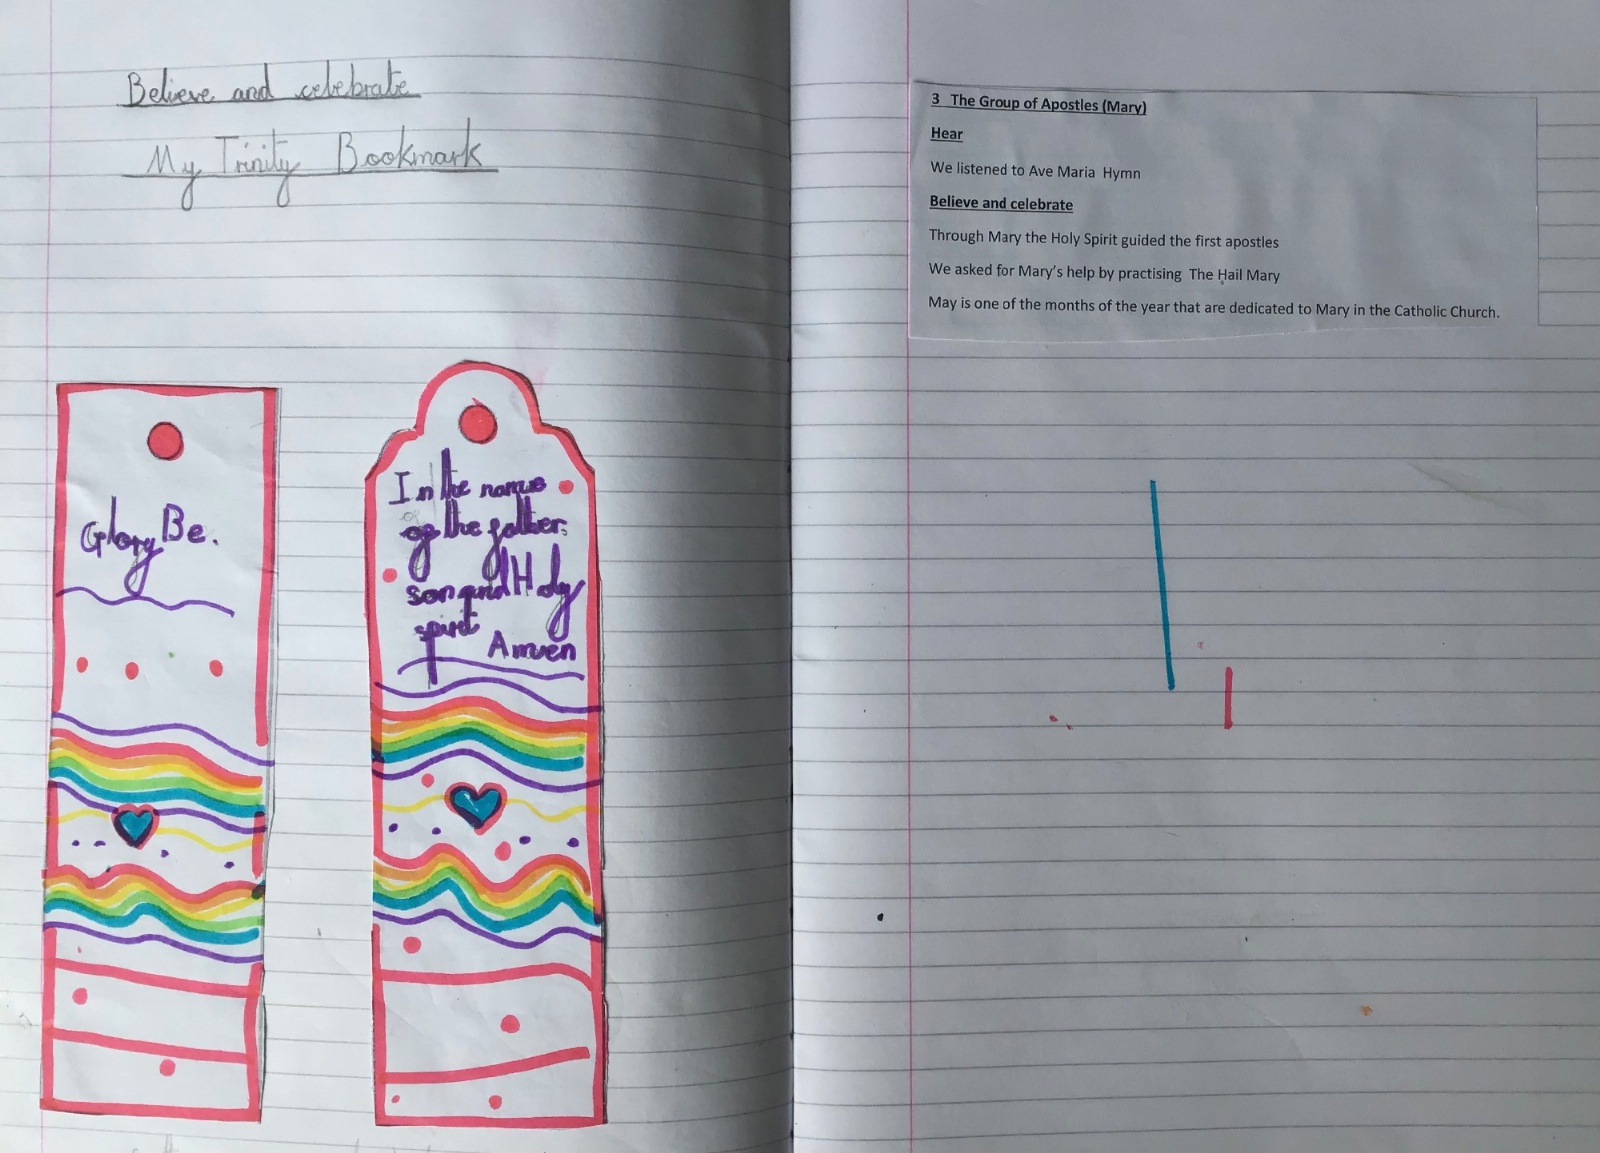 Believe and celebrate
My Trinity Bookmark
Glory Be.
In the name
of the father
son and Holy
spirit
Amen
3 The Group of Apostles (Mary)
Hear
We listened to Ave Maria Hymn
Believe and celebrate
Through Mary the Holy Spirit guided the first apostles
We asked for Mary's help by practising The Hail Mary
May is one of the months of the year that are dedicated to Mary in the Catholic Church.